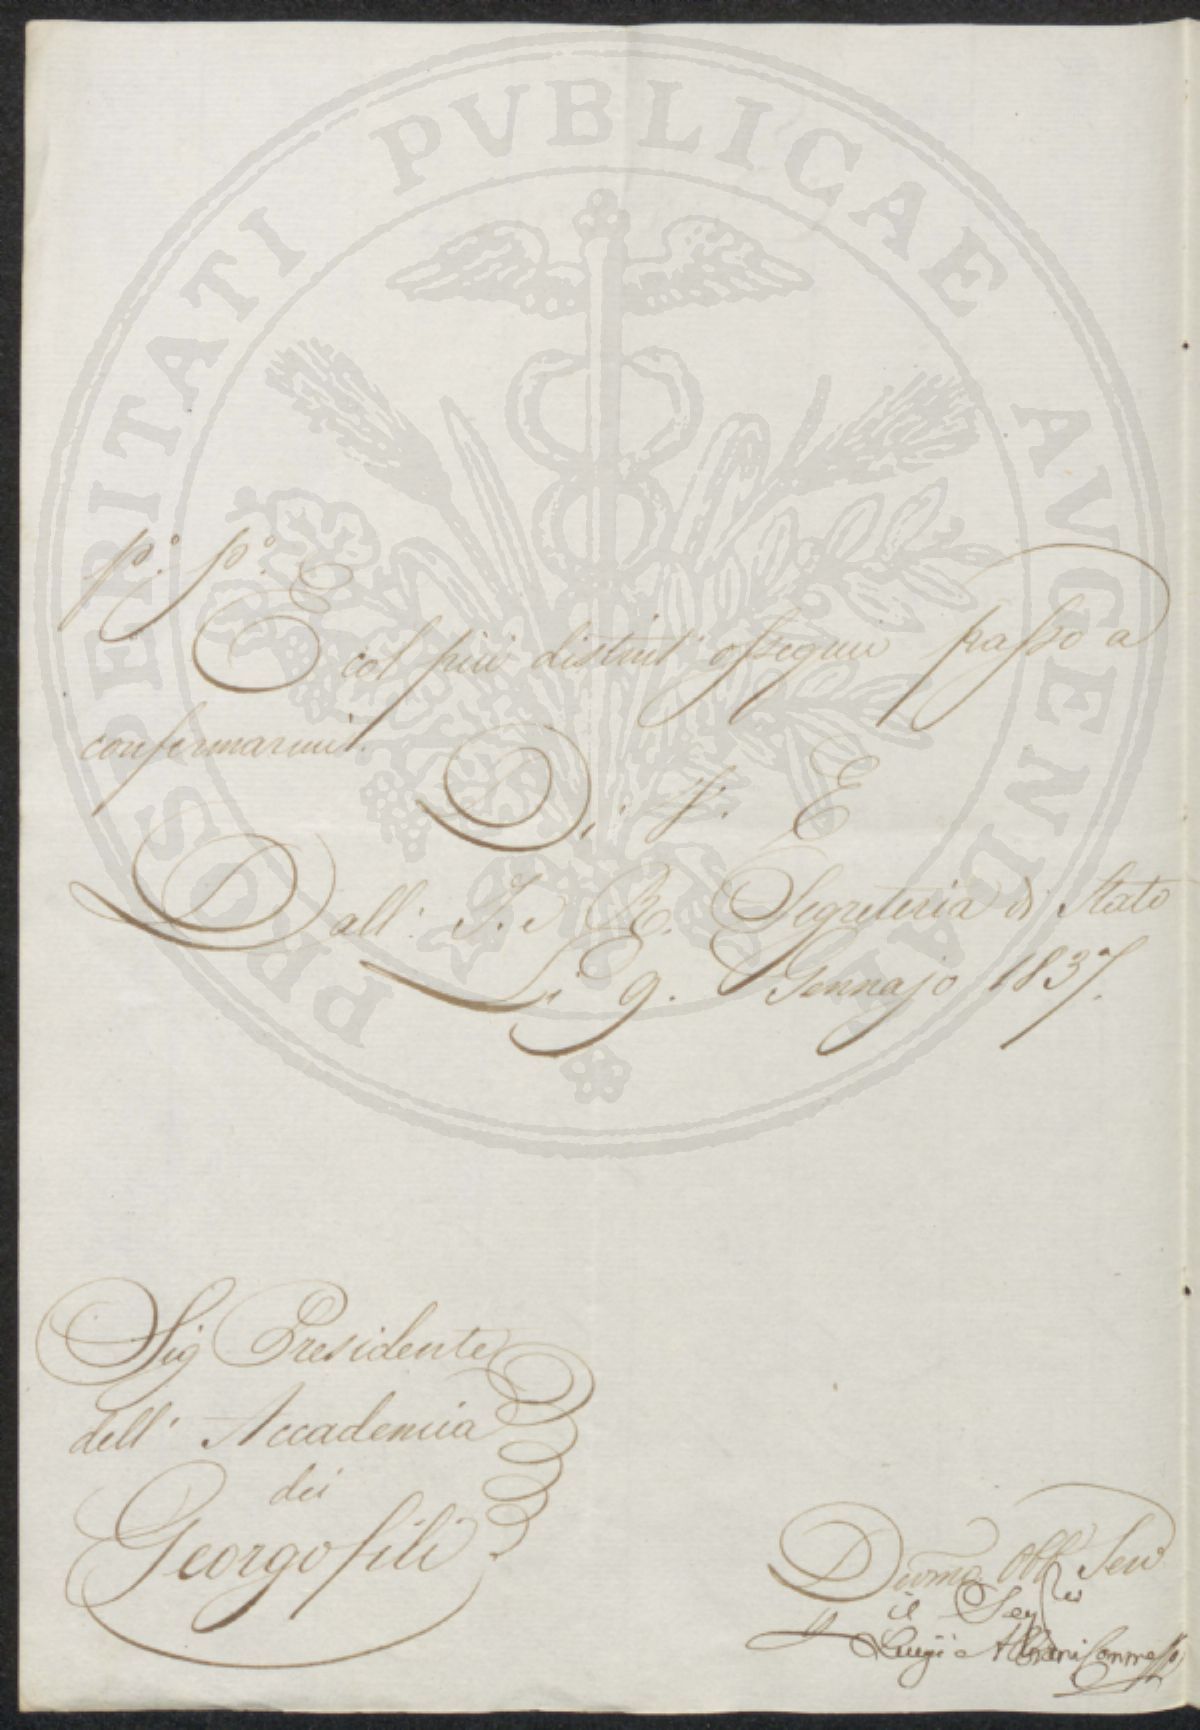 PROSPERITATI PVBLICAE AVGENDAE
pº. pº.
E col più distint' ossequio passo a
confermarmi.
Di V. E
Dall' I. e R. Segreteria di Stato
Li 9. Gennajo 1837.
Sig Presidente
dell' Accademia
dei
Georgofili
Devmo Obb Serv
il
Luigi